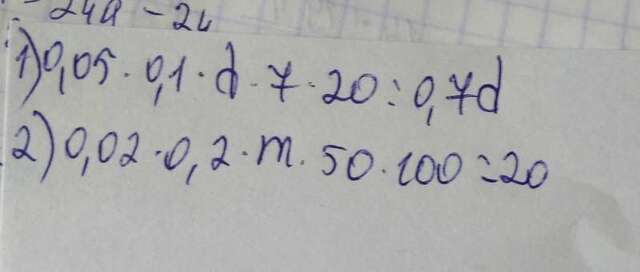 -24a-24
1) 0,05·0,1·d·7·20=0,7d
2) 0,02·0,2·m·50·100=20